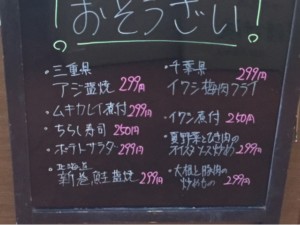 ！おそうざい！
・三重県
アジ塩焼 299円
・ムキカレイ煮付 299円
・ちらし寿司 250円
・ポテトサラダー 299円
・北海道
新巻鮭塩焼 299円
・千葉県 299円
イワシ梅肉フライ
・イワシ煮付 250円
・夏野菜とひき肉の
オイスターソース炒め 299円
・大根と豚肉の
炒めもの 299円